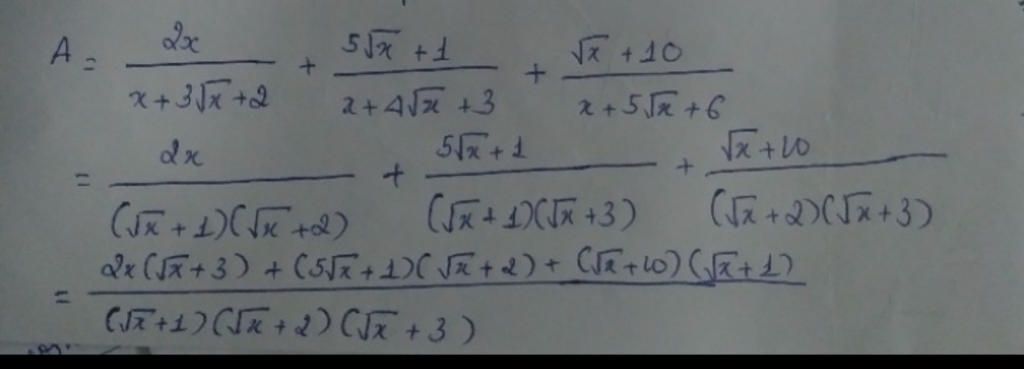 A = 2x/(x + 3√x + 2) + (5√x + 1)/(x + 4√x + 3) + (√x + 10)/(x + 5√x + 6)
= 2x/((√x + 1)(√x + 2)) + (5√x + 1)/((√x + 1)(√x + 3)) + (√x + 10)/((√x + 2)(√x + 3))
= (2x(√x + 3) + (5√x + 1)(√x + 2) + (√x + 10)(√x + 1))/((√x + 1)(√x + 2)(√x + 3))